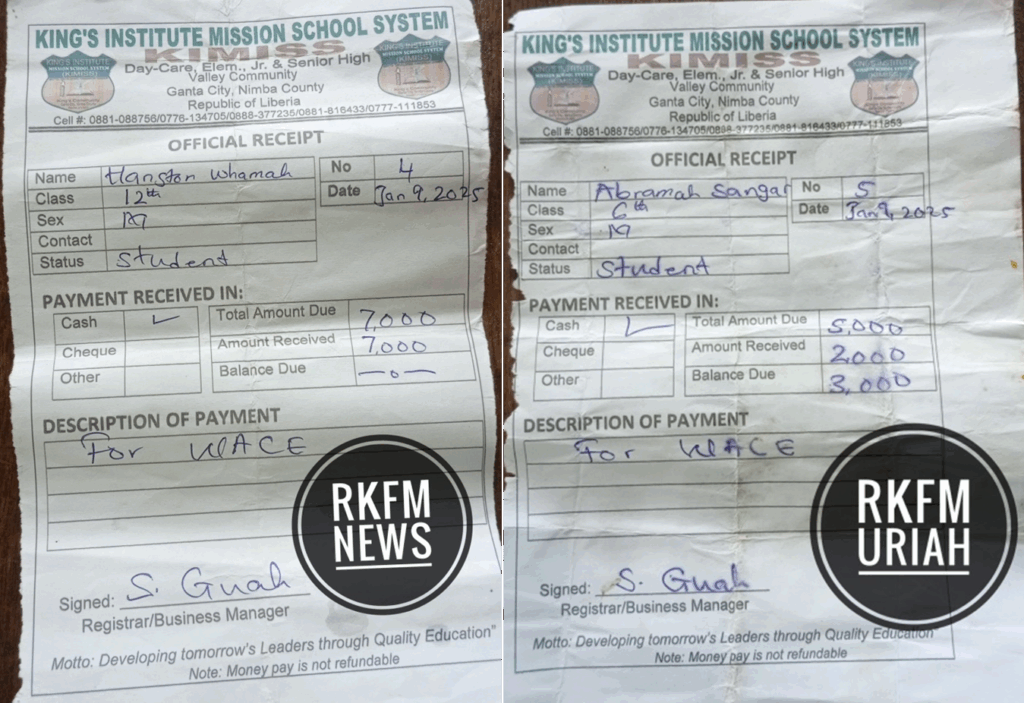 KING'S INSTITUTE MISSION SCHOOL SYSTEM
KIMISS
Day-Care, Elem., Jr. & Senior High
Valley Community
Ganta City, Nimba County
Republic of Liberia
Cell #: 0881-088756/0776-134705/0888-377235/0881-816433/0777-111853
OFFICIAL RECEIPT
Name Hanston Whamah
Class 12th
Sex M
Contact
Status Student
No 4
Date Jan 9, 2025
PAYMENT RECEIVED IN:
Cash ✓
Cheque
Other
Total Amount Due 7,000
Amount Received 7,000
Balance Due —0—
DESCRIPTION OF PAYMENT
For WACE
RKFM
NEWS
Signed: S. Guah
Registrar/Business Manager
Motto: Developing tomorrow's Leaders through Quality Education"
Note: Money pay is not refundable
KING'S INSTITUTE MISSION SCHOOL SYSTEM
KIMISS
Day-Care, Elem., Jr. & Senior High
Valley Community
Ganta City, Nimba County
Republic of Liberia
Cell #: 0881-088756/0776-134705/0888-377235/0881-816433/0777-111853
OFFICIAL RECEIPT
Name Abramah Sangar
Class 6th
Sex M
Contact
Status Student
No 5
Date Jan 9, 2025
PAYMENT RECEIVED IN:
Cash ✓
Cheque
Other
Total Amount Due 5,000
Amount Received 2000
Balance Due 3,000
DESCRIPTION OF PAYMENT
For WACE
RKFM
URIAH
Signed: S. Guah
Registrar/Business Manager
Motto: Developing tomorrow's Leaders through Quality Education
Note: Money pay is not refundable